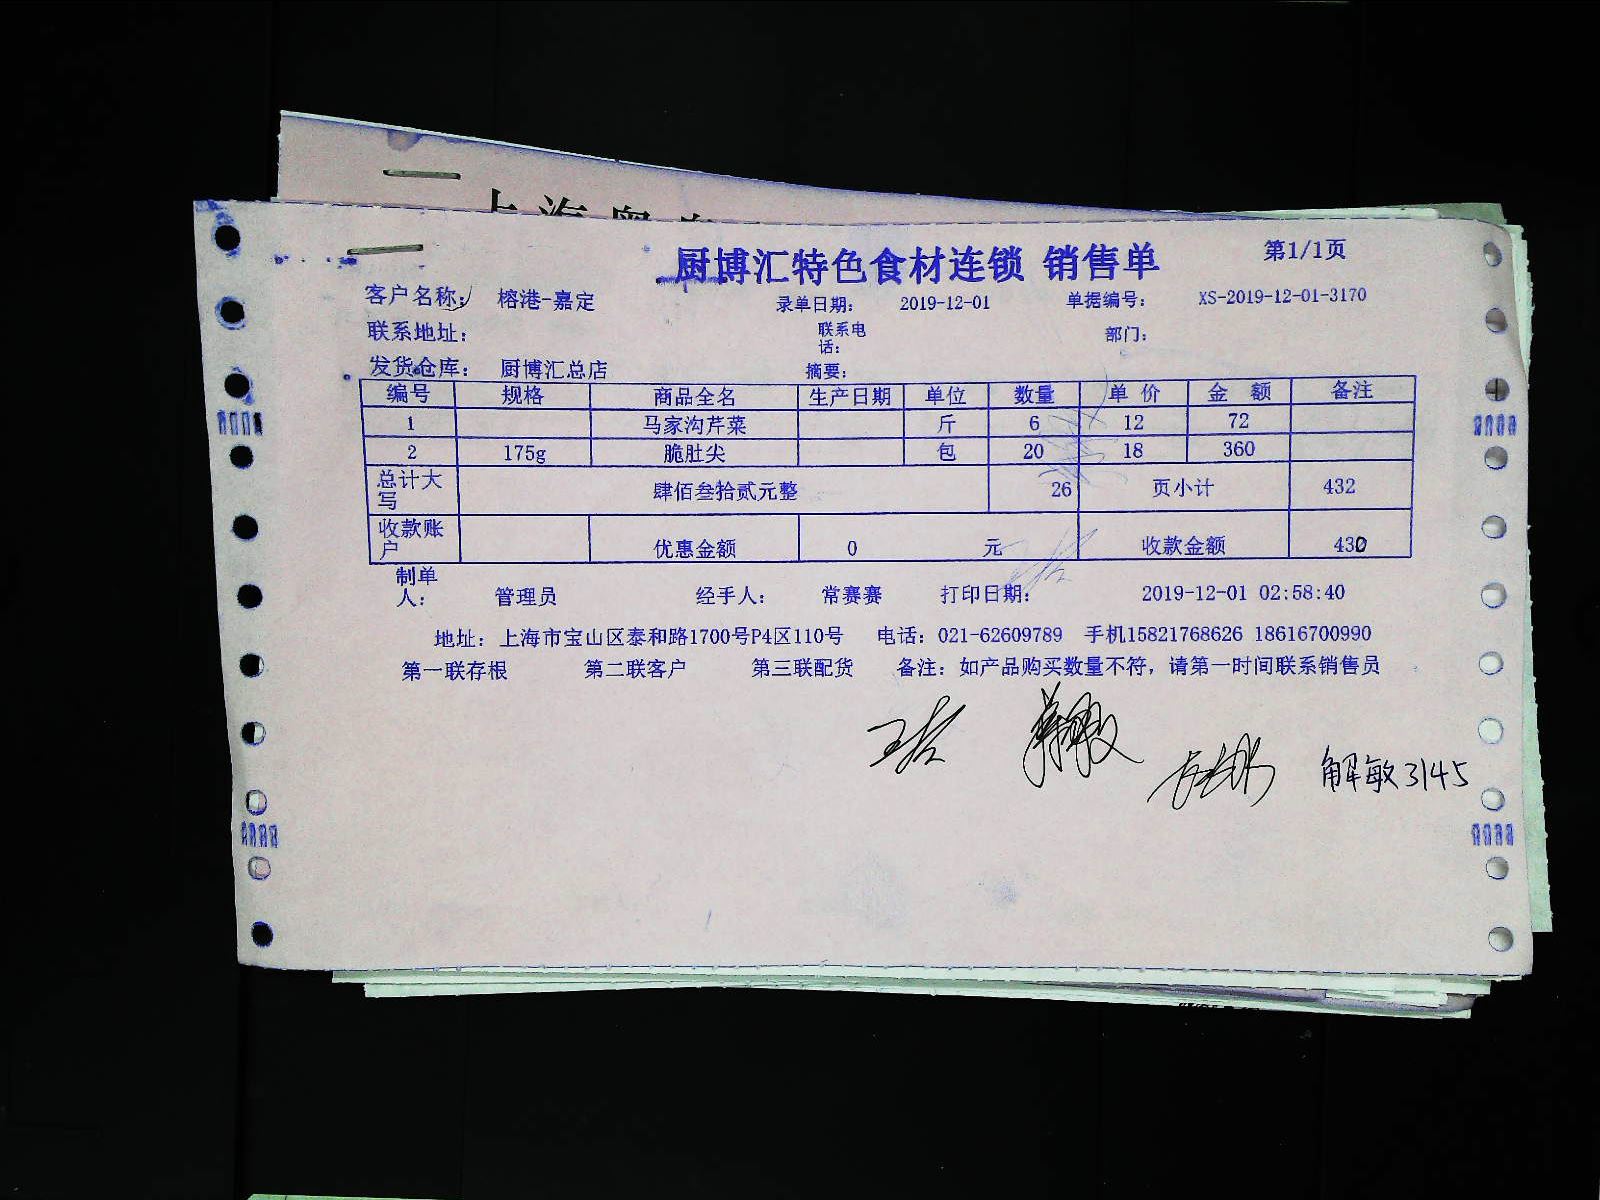 厨博汇特色食材连锁 销售单 第1/1页
客户名称: 榕港-嘉定 录单日期: 2019-12-01 单据编号: XS-2019-12-01-3170
联系地址: 联系电话: 部门:
发货仓库: 厨博汇总店 摘要:
编号 规格 商品全名 生产日期 单位 数量 单价 金额 备注
1 马家沟芹菜 斤 6 12 72
2 175g 脆肚尖 包 20 18 360
总计大写 肆佰叁拾贰元整 26 页小计 432
收款账户 优惠金额 0 元 收款金额 430
制单人: 管理员 经手人: 常赛赛 打印日期: 2019-12-01 02:58:40
地址: 上海市宝山区泰和路1700号P4区110号 电话: 021-62609789 手机15821768626 18616700990
第一联存根 第二联客户 第三联配货 备注: 如产品购买数量不符, 请第一时间联系销售员
解敏3145